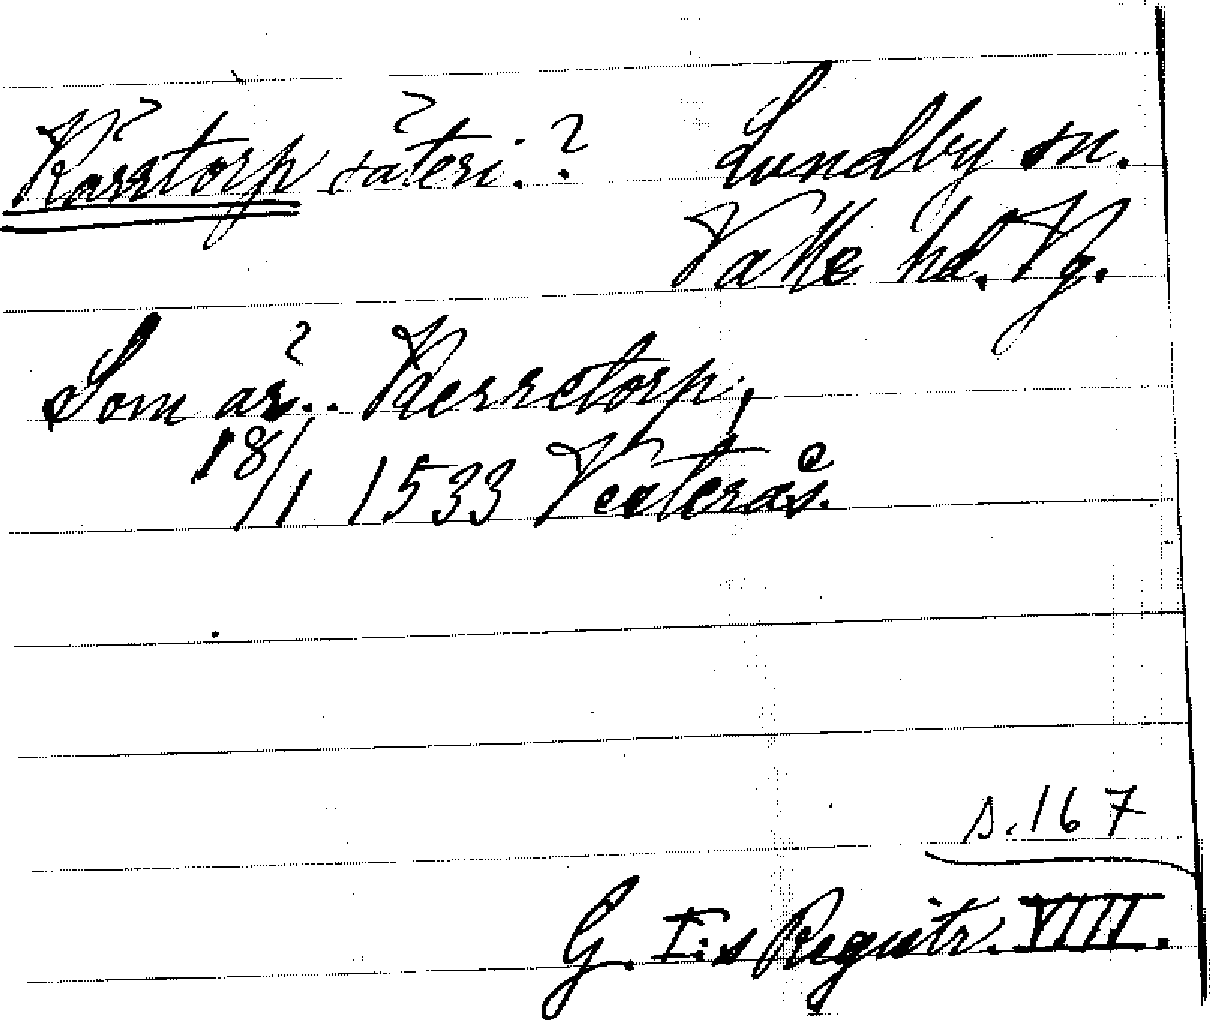 Kärrtorp säteri.? Lundby sn.
Valle hd. Vg.
Som är.. Kerretorp,
18/1 1533 Vesterås.
s. 167
G. I:s Registr. VIII.